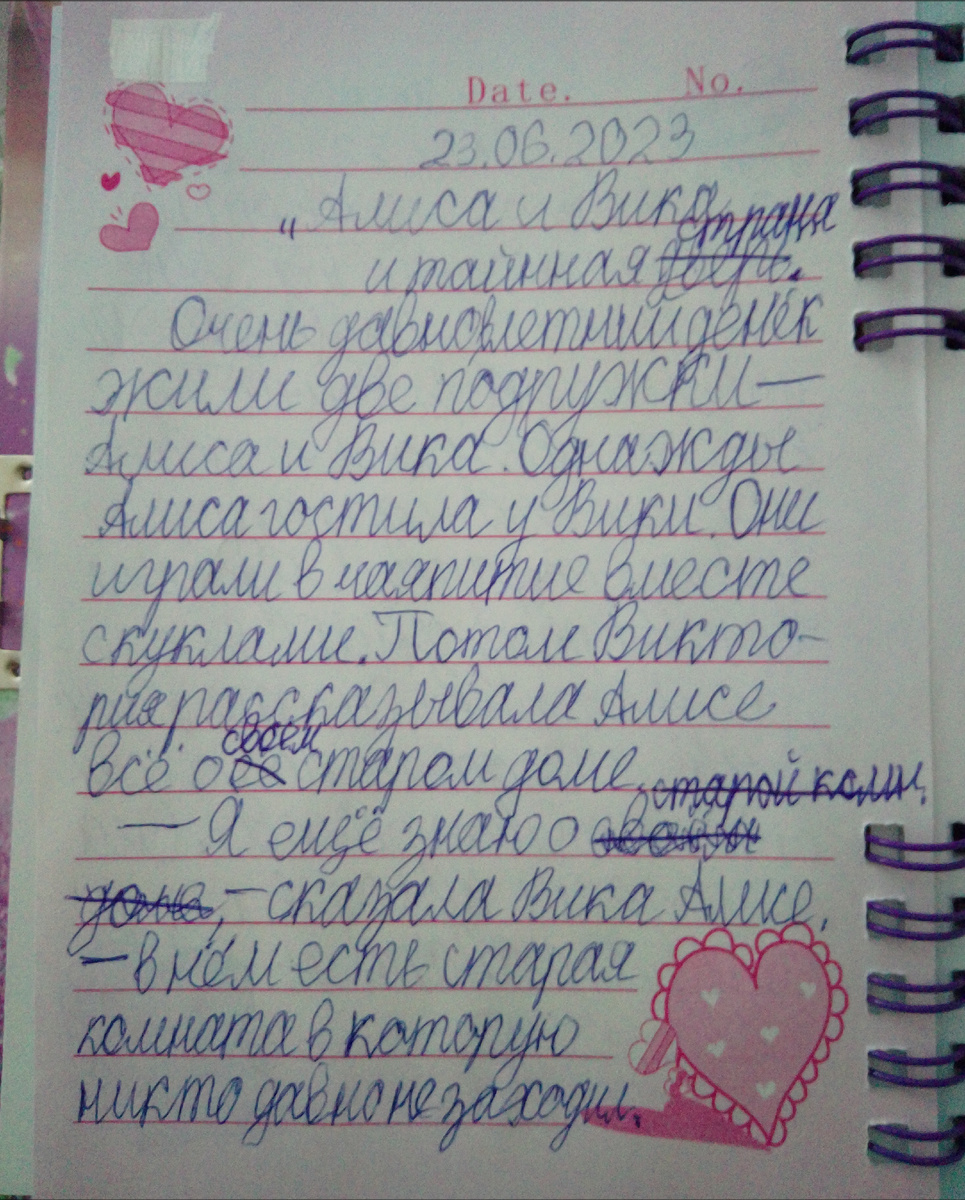 Date. No.
23.06.2023
„Алиса и Вика
страна
и тайнная дверь.
Очень давно влетний денёк
жили две подружки —
Алиса и Вика. Однажды
Алиса гостила у Вики. Они
играли в чаяпитие вместе
с куклами. Потом Викто-
рия рассказывала Алисе
своем
всё о её старом доме.
старой комн.
— Я ещё знаю о своём
доме, — сказала Вика Алисе,
— в нём есть старая
комната в которую
никто давно не заходил.